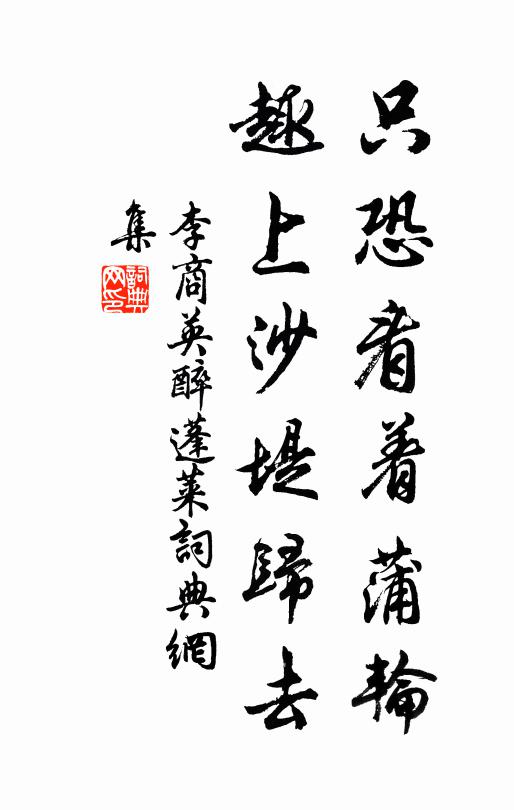 只恐看看蒲輪
趣上沙堤歸去
李商英醉蓬萊詞典網
集
詞典網印